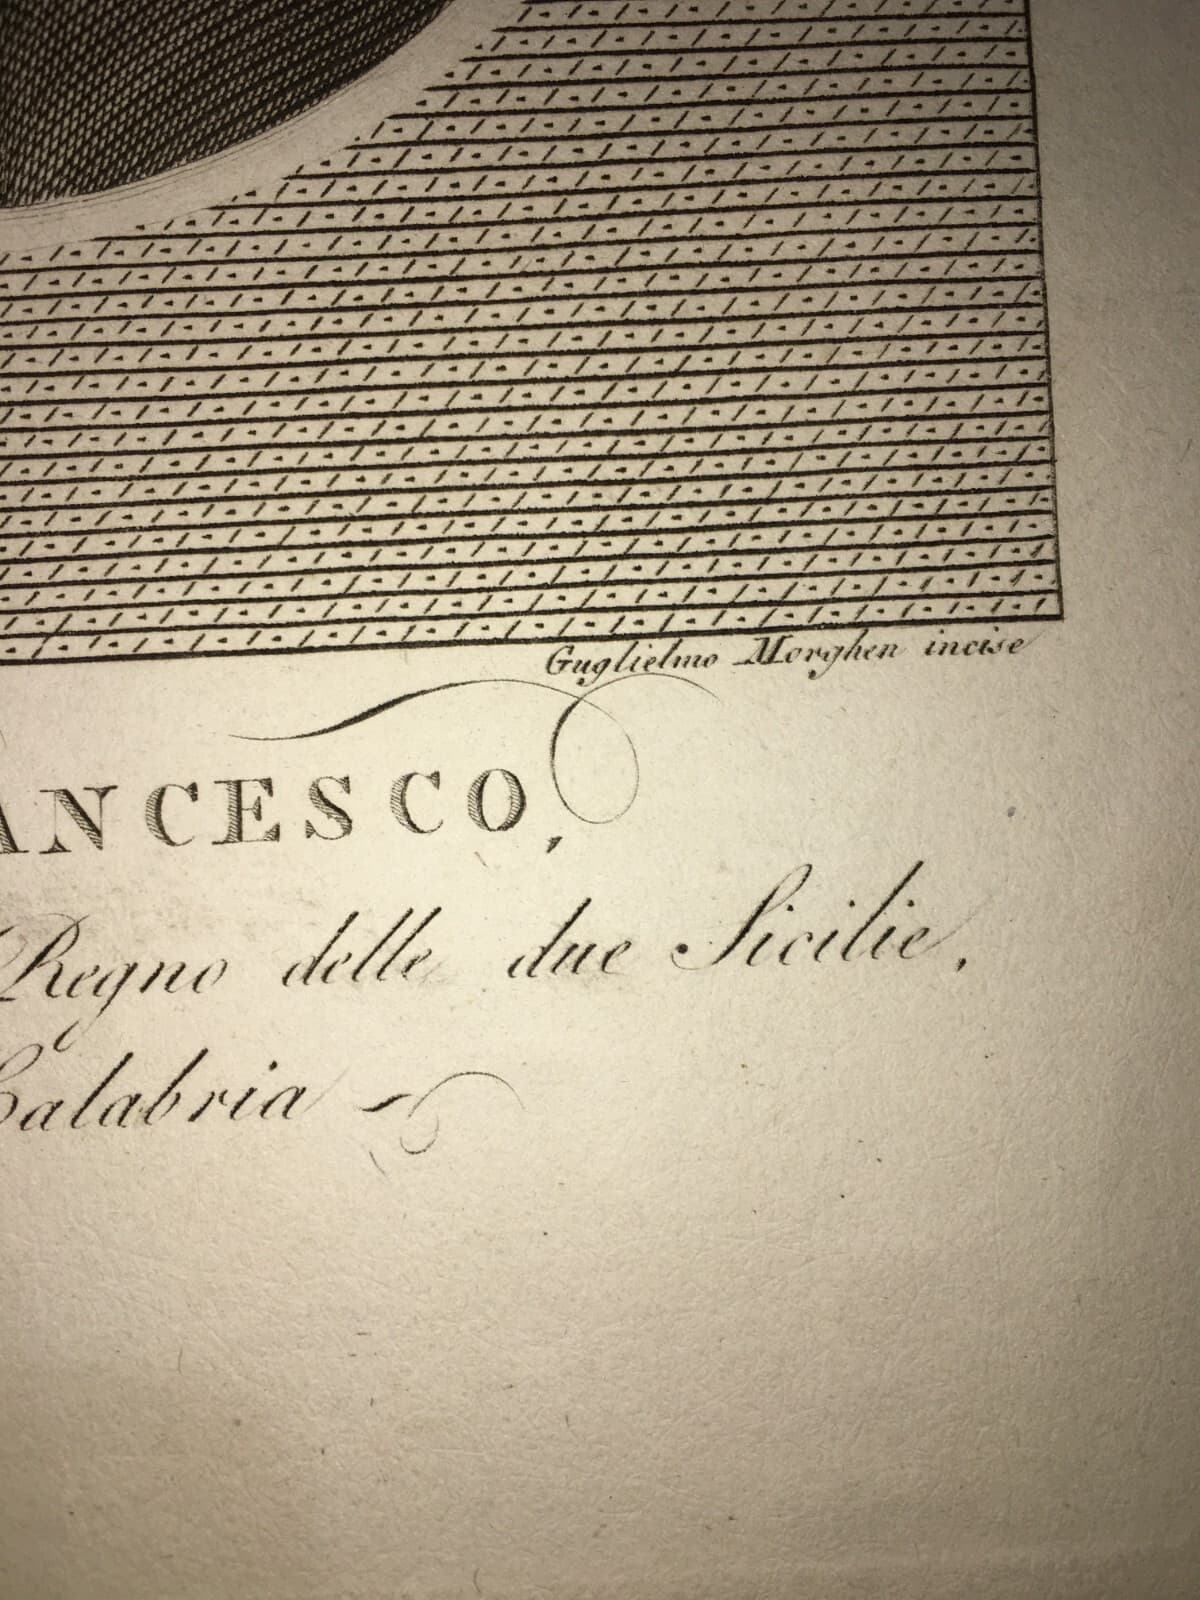 Guglielmo Morghen incise
ANCESCO,
Regno delle due Sicilie,
Calabria